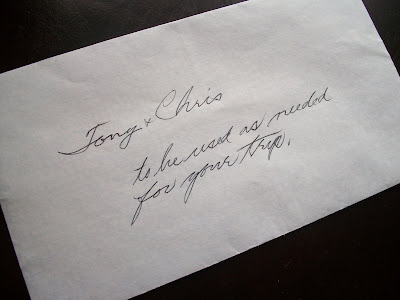 Tony + Chris
to be used as needed
for your trip.